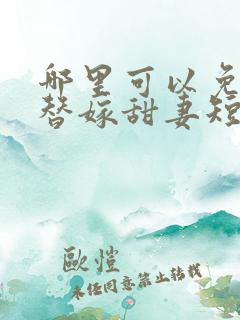 哪里可以免
替嫁甜妻短
欧恺
未经同意禁止转载